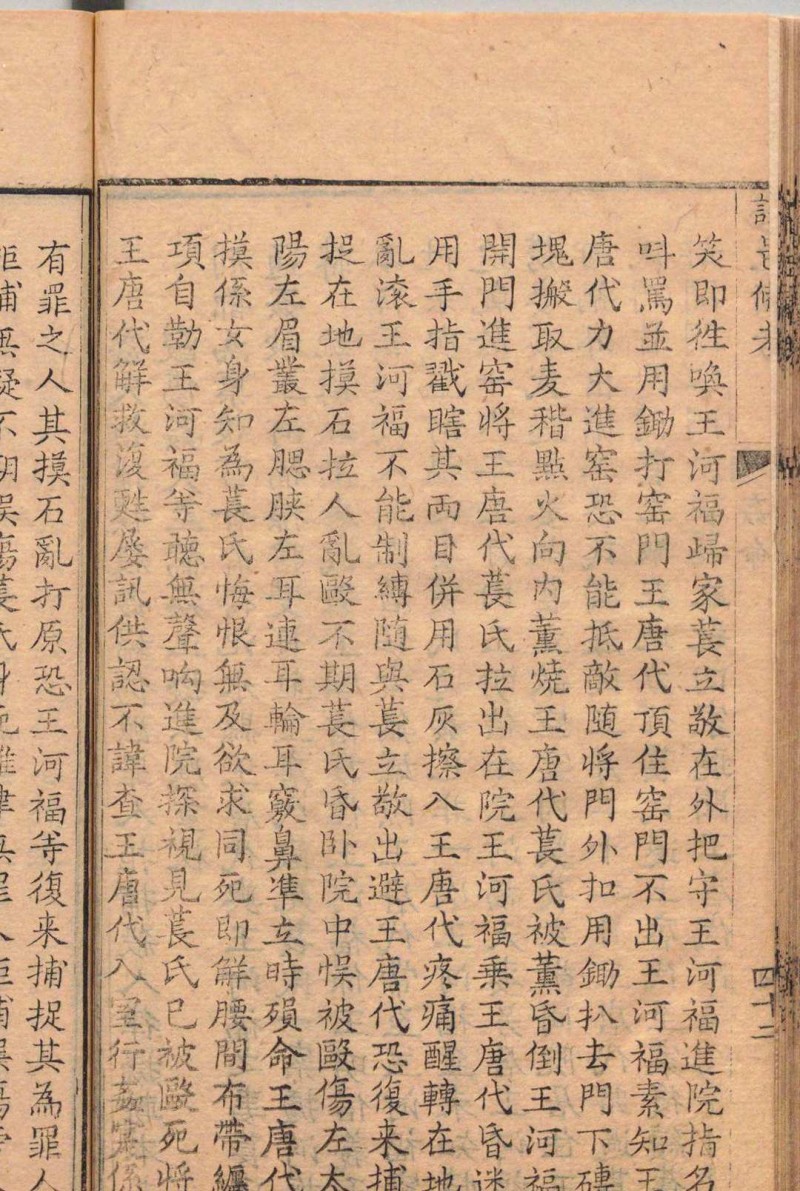 笑即徃喚王河福歸家萇立敬在外把守王河福進院指名
呌罵並用鋤打窑門王唐代頂住窑門不出王河福素知王
唐代力大進窑恐不能抵敵随將門外扣用鋤扒去門下磚
塊搬取麦稭點火向内薰燒王唐代萇氏被薰昏倒王河福
開門進窑將王唐代萇氏拉出在院王河福乗王唐代昏迷
用手指戳瞎其両目併用石灰擦入王唐代疼痛醒轉在地
亂滚王河福不能制縛随與萇立敬出避王唐代恐復来捕
捉在地摸石拉人亂毆不期萇氏昏卧院中悞被毆傷左太
陽左眉叢左腮脥左耳連耳輪耳竅鼻凖立時殞命王唐代
摸係女身知為萇氏悔恨無及欲求同死即觧腰間布帶纏
項自勒王河福等聴無聲响進院探視見萇氏已被毆死將
王唐代觧救復甦屡訊供認不諱查王唐代入室行姦寔係
有罪之人其摸石亂打原恐王河福等復来捕捉其為罪人
四十二